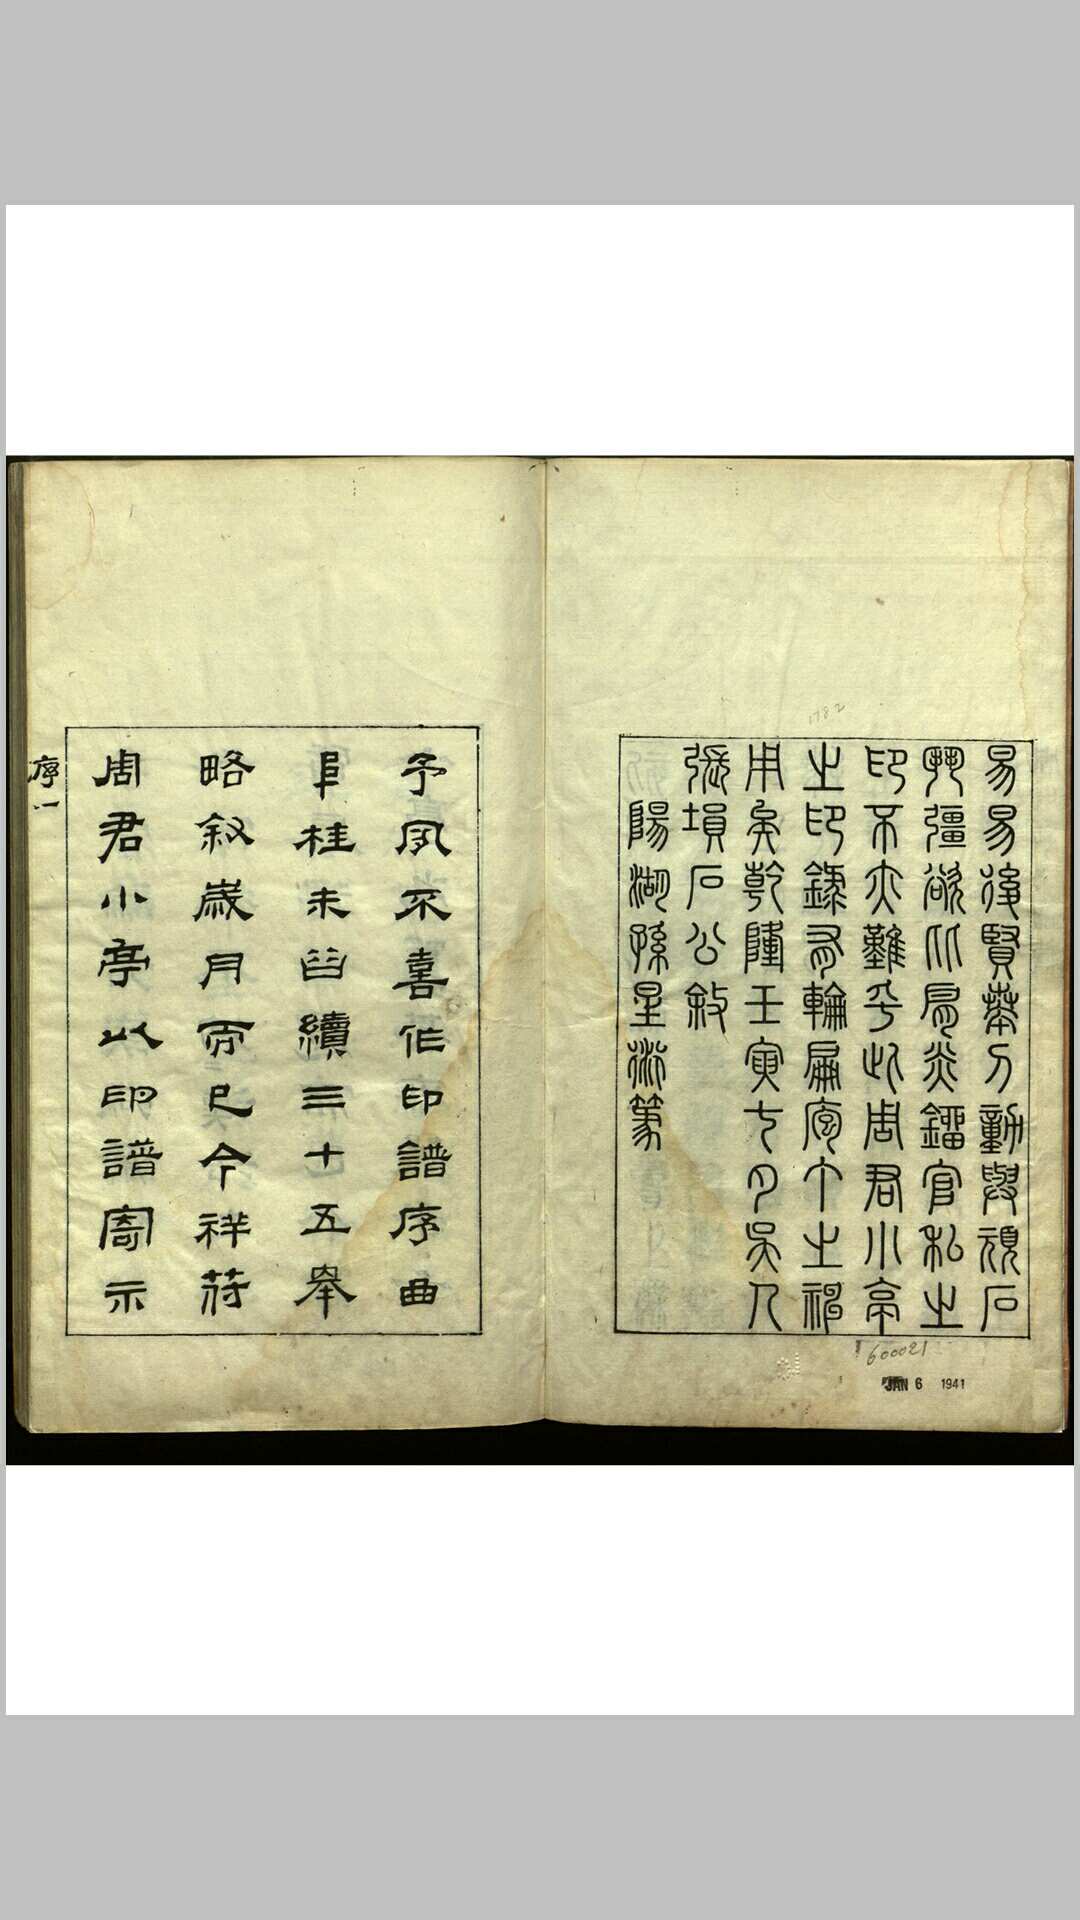 易易後賢奉刀動與頑石
彊欲以炎鐂官私之
印不亦難乎此周君小亭
之印錄輪扁庖丁之神
用矣乾隆壬寅七月吳人
張塤石公敘
陽湖孫星衍篆
1782
600021
JAN 6 1941
予夙不喜作印譜序曲
阜桂未谷續三十五舉
略敘歲月而已今祥符
周君小亭以印譜寄示
序一